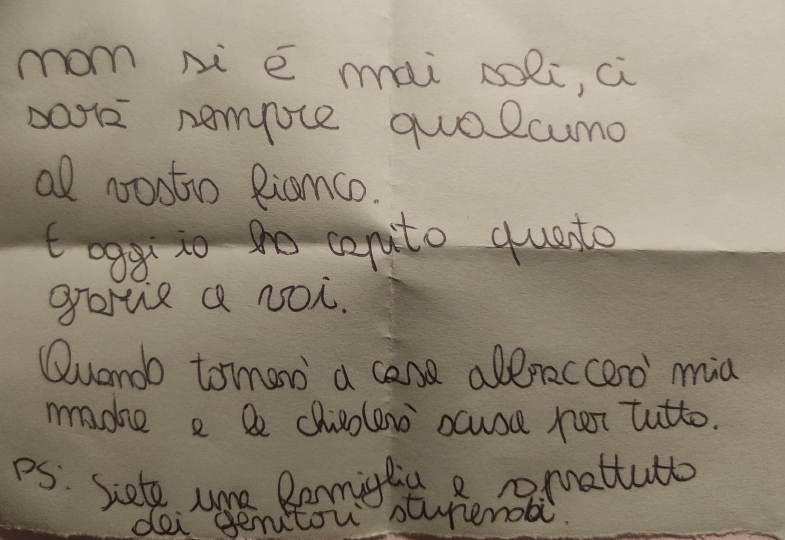 non si é mai soli, ci
sarà sempre qualcuno
al vostro fianco.
E oggi io ho capito questo
grazie a voi.
Quando tornerò a casa abbraccerò mia
madre e le chiederò scusa per tutto.
PS: Siete una famiglia e soprattutto
dei genitori stupendi.